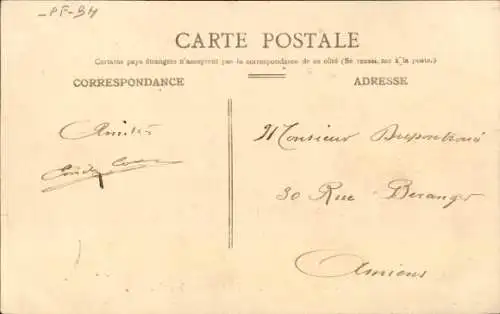 PF-B4
CARTE POSTALE
Certains pays étrangers n'acceptent pas la correspondance de ce côté (Se renseigner à la poste.)
CORRESPONDANCE
ADRESSE
Amitiés
Monsieur
30 Rue Beranger
Amiens